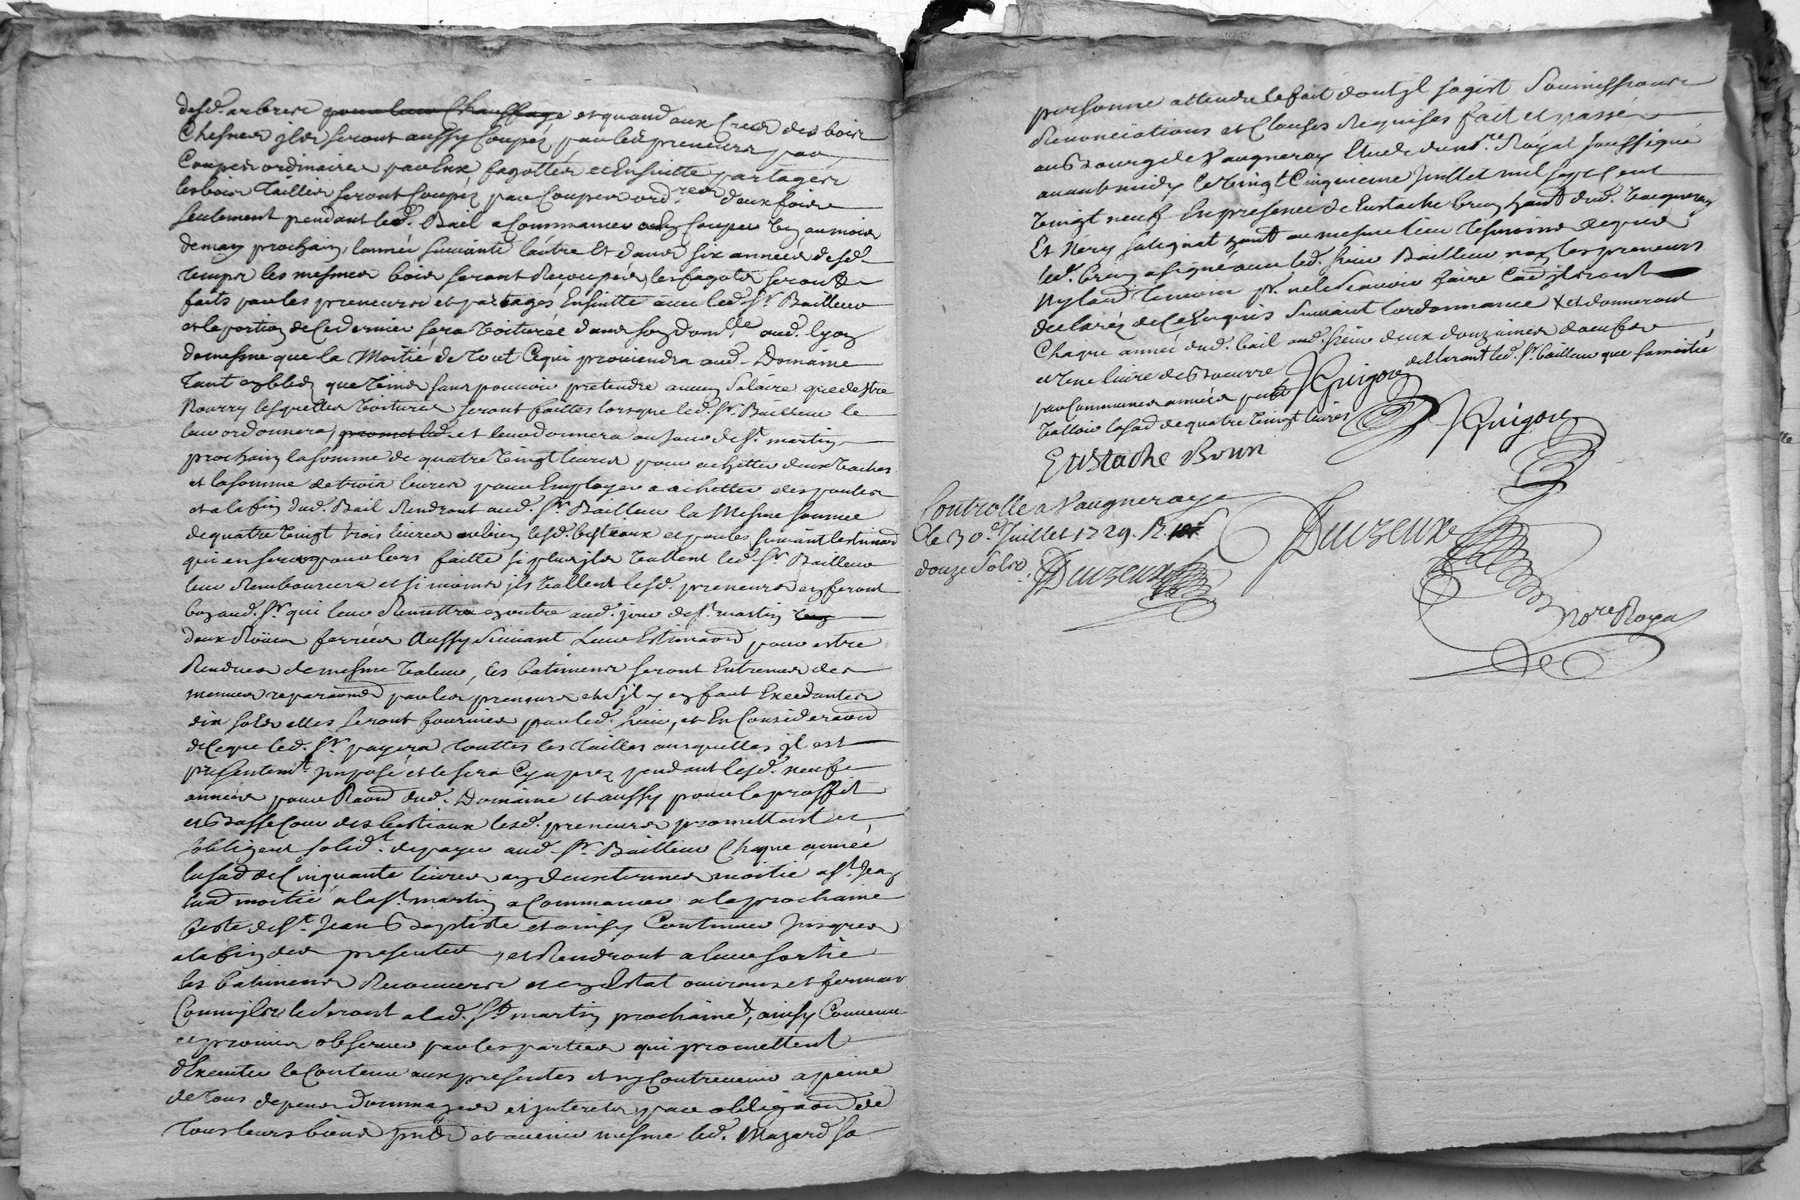 desd. arbres pour leur Chauffage et quand aux Creux des bois
Chesnes ils seront aussy Coupéz par les preneurs par
Coupes ordinaires par eux fagottés et Ensuitte partagés
les bois Taillis seront Coupéz par Coupes ord.res deux fois
seulement pendant led. Bail a Commancer au mois
de may prochain, lannee suivante lautre Et dans six années desd.
temps les mesmes bois seront Recoupés, les fagots seront
faits par les preneurs et partagés Ensuitte avec led. Sr. Bailleur
et la portion de Ce dernier sera voiturée dans son dom.lle aud. lyon
de mesme que la Moitié de tout Ce qui proviendra aud. Domaine
tant en bled que vins sans pouvoir pretendre aucun salaire que destre
Nourry lesquelles voitures seront faittes lorsque led. Sr. Bailleur le
leur ordonnera, promet led. et leur donnera au jour de St. martin
prochain la somme de quatre vingt livres pour achetter deux vaches
et la somme de trois livres pour Employer a achetter des poules
et a la fin dud. Bail Rendront aud. Sr. Bailleur la Mesme somme
de quatre vingt trois livres ou bien lesd. bestiaux et poules suivant lestimaon
qui en sera pour lors faitte si plus ils vallent led. Sr. Bailleur
leur Remboursera et si moins ils vallent lesd. preneurs en feront
bon aud. Sr. qui leur Remettra en outre aud. jour de St. martin
deux Roües ferrées Aussy suivant Leur Estimaon pour estre
Rendües de mesme valeur, les batiments seront Entretenus des
menues reparaons par les preneurs et s'il y en faut Excedantes
dix sols elles seront fournies par led. sieur, et En Consideraon
de Ce que led. Sr. payera touttes les tailles ausquelles il est
presentemt. imposé et le sera Cy apres pendant lesd. neuf
années pour Raon dud. Domaine et aussy pour le proffit
et Basse Cour des bestiaux lesd. preneurs promettent et
sobligent solidt. de payer aud. Sr. Bailleur Chaque année
la sad de Cinquante livres en deux termes moitié a St. Jean
laud moitié a la St. martin a Commancer a la prochaine
feste de St. Jean Baptiste et ainsy Continuer jusques
a la fin des presentes, et Rendront a leur sortie
les batiments Recouverts et en Estat ouvrant et fermant
Comm'ils le seront a lad. St. martin prochaine x, ainsy Convenu
et promis observer par les parties qui promettent
d'Executer le Contenu aux presentes et ny Contrevenir a peine
de tous depens dommages et jnterets par obligaon de
tous leurs biens pnts et avenir mesme led. Mazard sa
personne attendu le fait dont jl sagist soumissions
Renonciations et Clauses Requises fait et passé
au Bourg de Vaugneray Etude dud. no.re Royal soussigné
avant midy Ce vingt Cinquieme Juillet mil sept Cent
vingt neuf En presence de Eustache brun hant dud. Vaugneray
Et Nery salignat hant au mesme lieu tesmoins Requis
led. brun a signé avec led. sieur Bailleur non les preneurs
ny laud temoin pr. ne le scavoir faire Car jls ont
declarés de Ce Enquis Suivant l'ordonnance x et donneront
Chaque année dud. bail aud. sieur deux douzaines doeufs
et une livre de Beurre declarant led. Sr. bailleur que sa moitié
par Communes années peut JGuigou
valloir la sad de quatre vingt livres JGuigou
Eustache Brun
Controlle a Vaugneraye
le 30e. Juillet 1729. R.
douze sols. Deuzeux
Deuzeux
No.re Royal